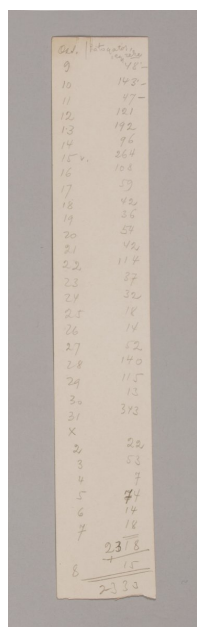 Oct.
9 48 –
10 148 –
11 47 –
12 121
13 192
14 96
15 v. 264
16 108
17 59
18 42
19 26
20 57
21 42
22 114
23 37
24 32
25 18
26 14
27 52
28 140
29 115
30 13
31 343
x
2 22
3 53
4 7
5 74
6 14
7 18
2318
8 + 15
2333